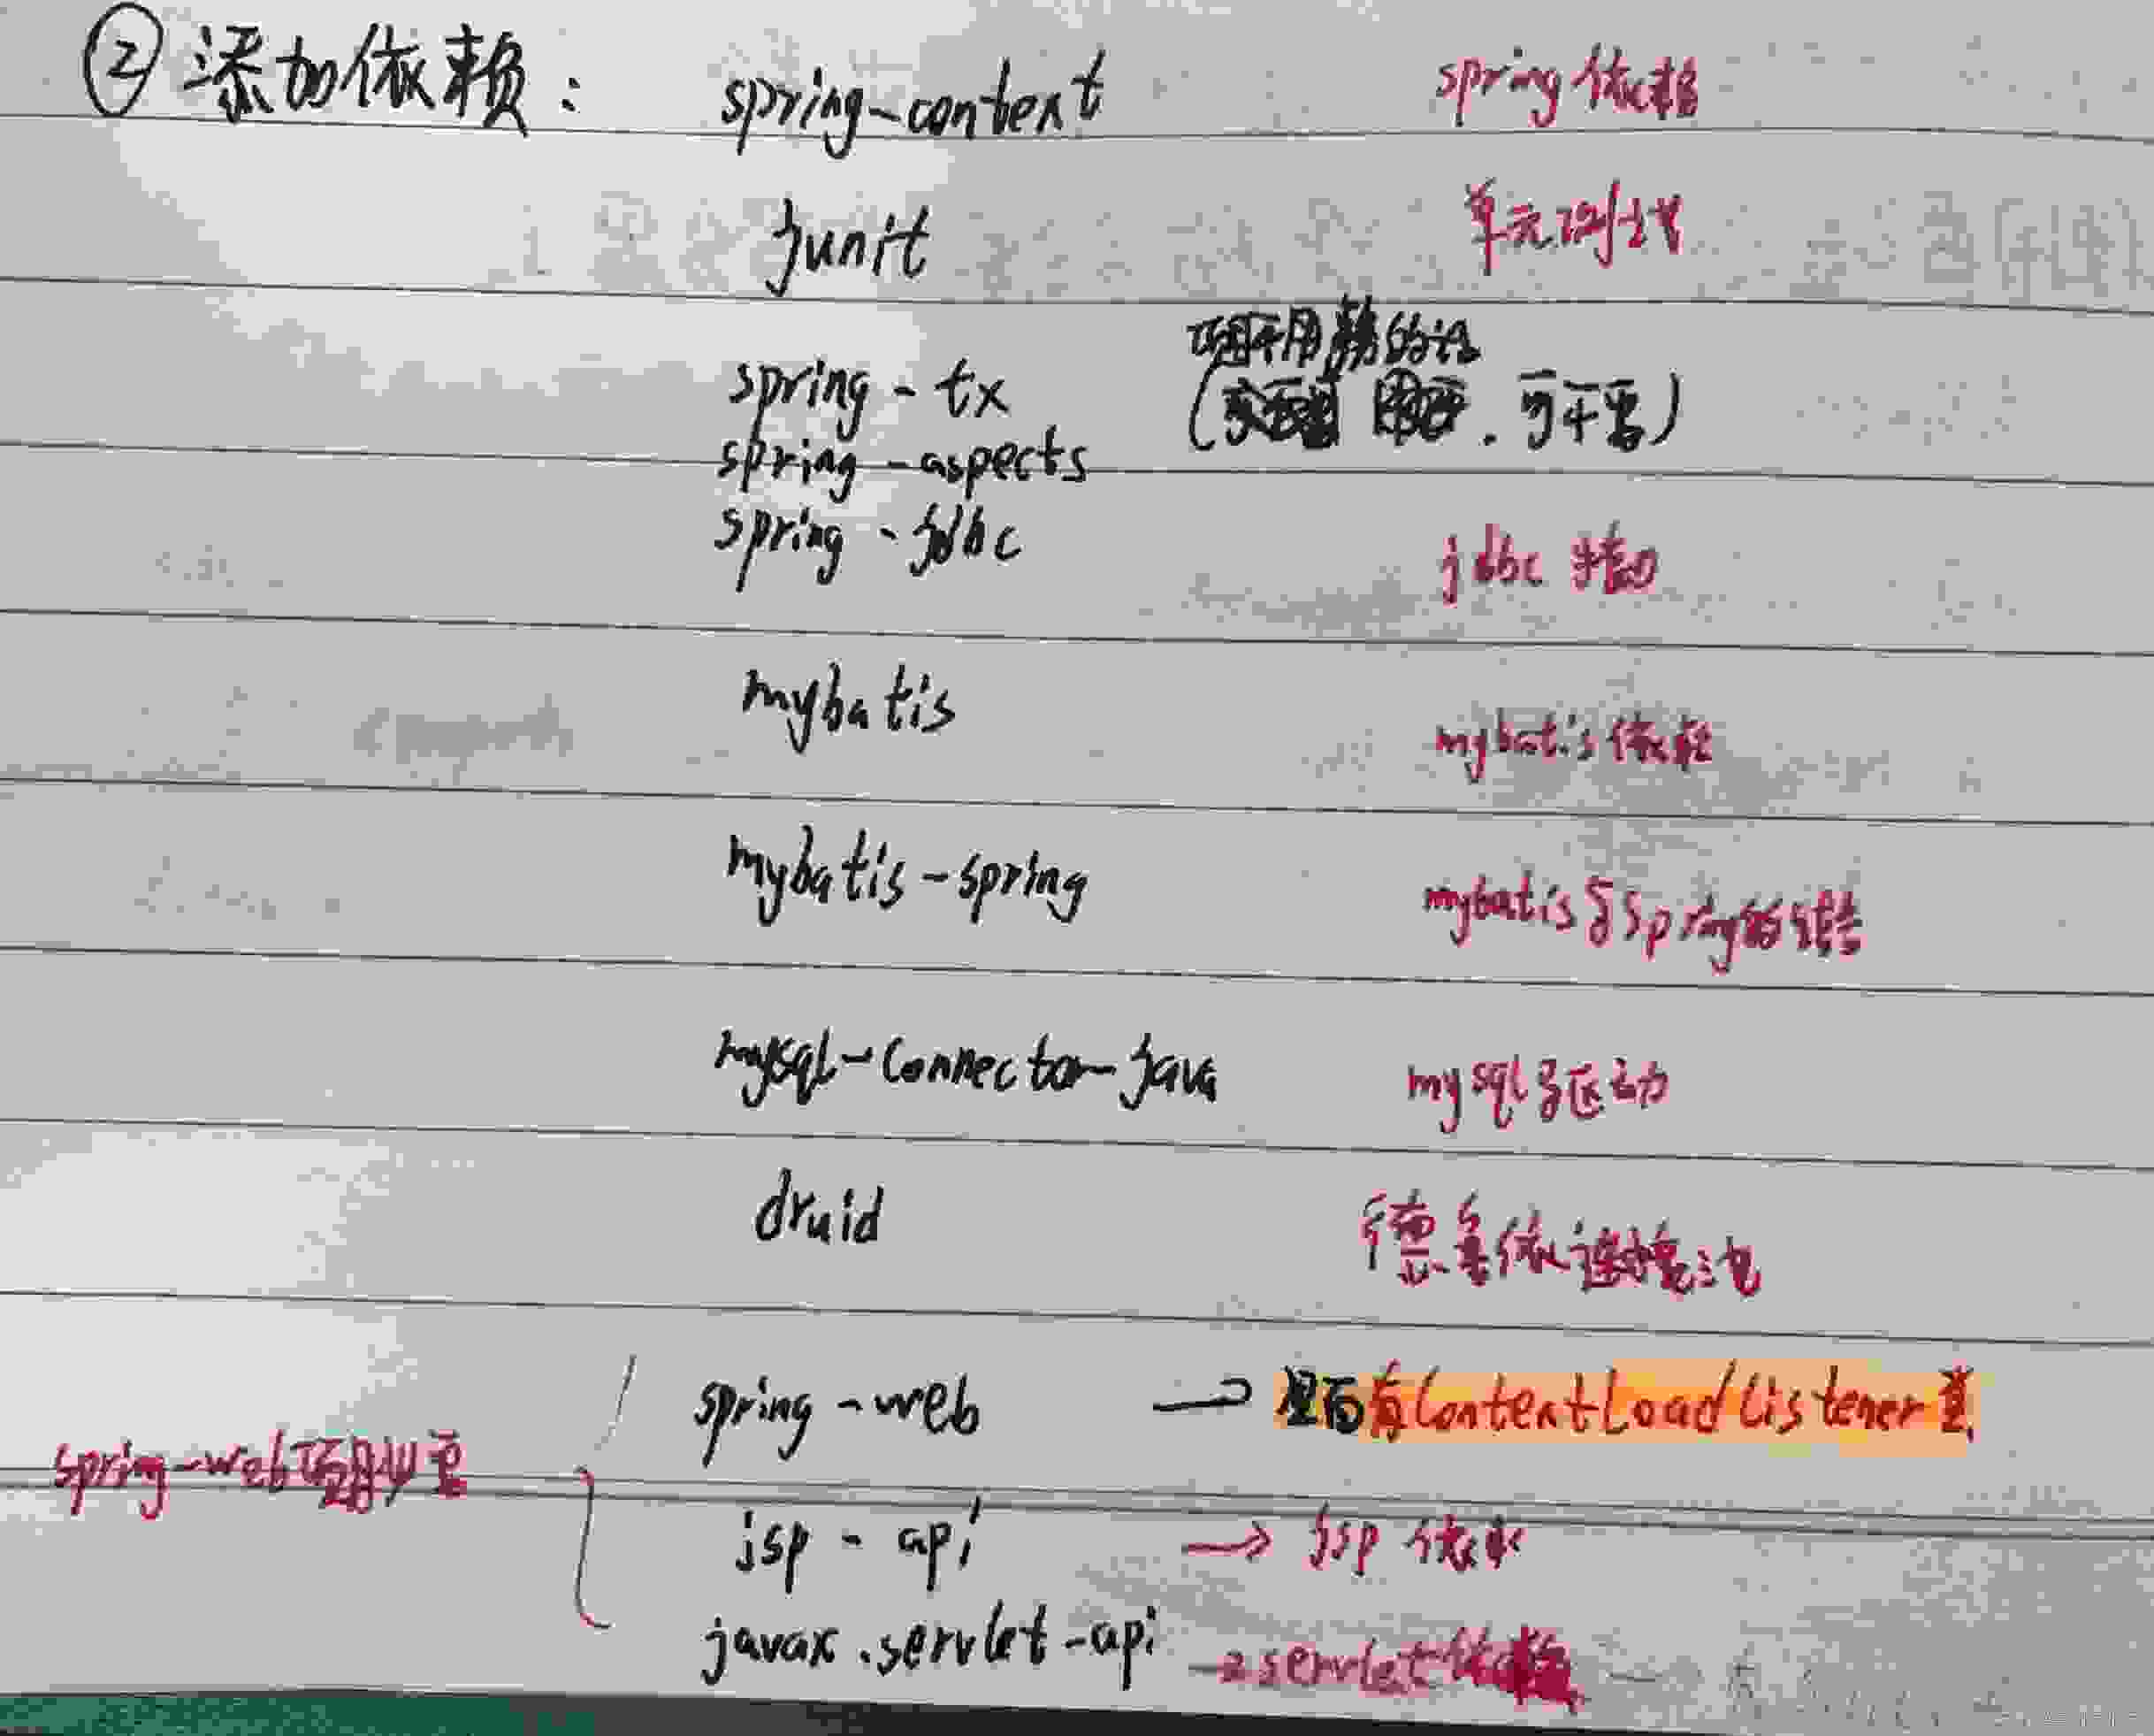 ② 添加依赖: spring-context spring依赖
junit 单元测试
不用事务的话
spring-tx ( , 可不要)
spring-aspects
spring-jdbc jdbc
mybatis mybatis依赖
mybatis-spring mybatis与spring的结合
mysql-connector-java mysql驱动
druid 德鲁依连接池
spring-web → 里面有ContextLoadListener类
spring-web项目必要
jsp-api → jsp依赖
javax.servlet-api → servlet依赖